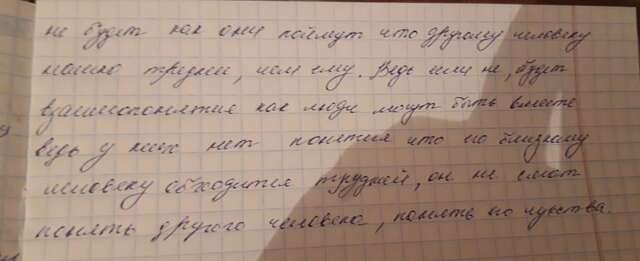 не будет как они поймут что другому человеку
можно трудней, чем ему. Ведь если не, будет
взаимопонятия как люди могут быть вместе
ведь у них нет понятия что его близкому
человеку обходится трудней, он не смог
понять другого человека, понять его чувства.